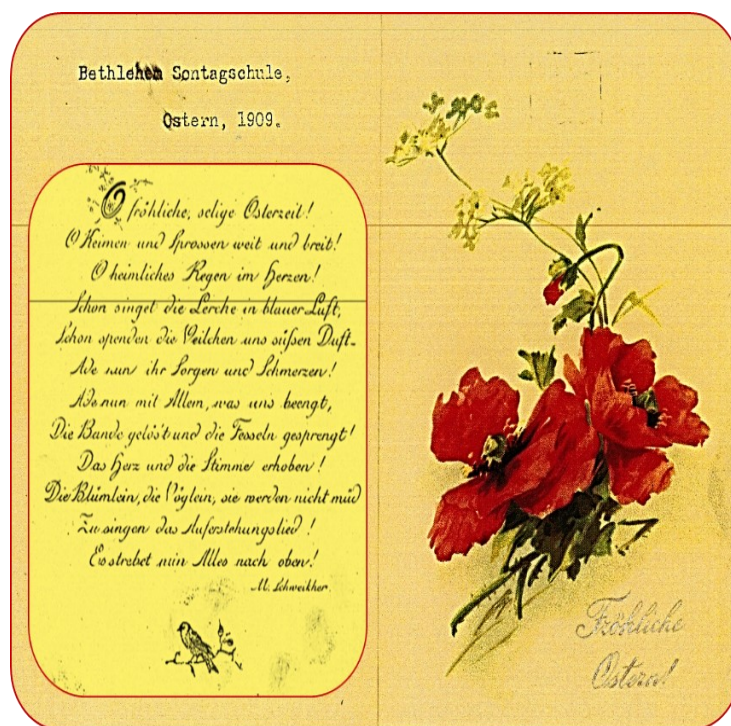 Bethlehem Sontagschule,
Ostern, 1909.
O fröhliche, selige Osterzeit!
O Keimen und Sprossen weit und breit!
O heimliches Regen im Herzen!
Schon singet die Lerche in blauer Luft,
Schon spenden die Veilchen uns süßen Duft-
Ade nun ihr Sorgen und Schmerzen!
Ade nun mit Allem, was uns beengt,
Die Bande gelöst und die Fesseln gesprengt!
Das Herz und die Stimme erhoben!
Die Blümlein, die Vöglein, sie werden nicht müd
Zu singen das Auferstehungslied!
Es strebet nun Alles nach oben!
M. Schweikher.
Fröhliche
Ostern!